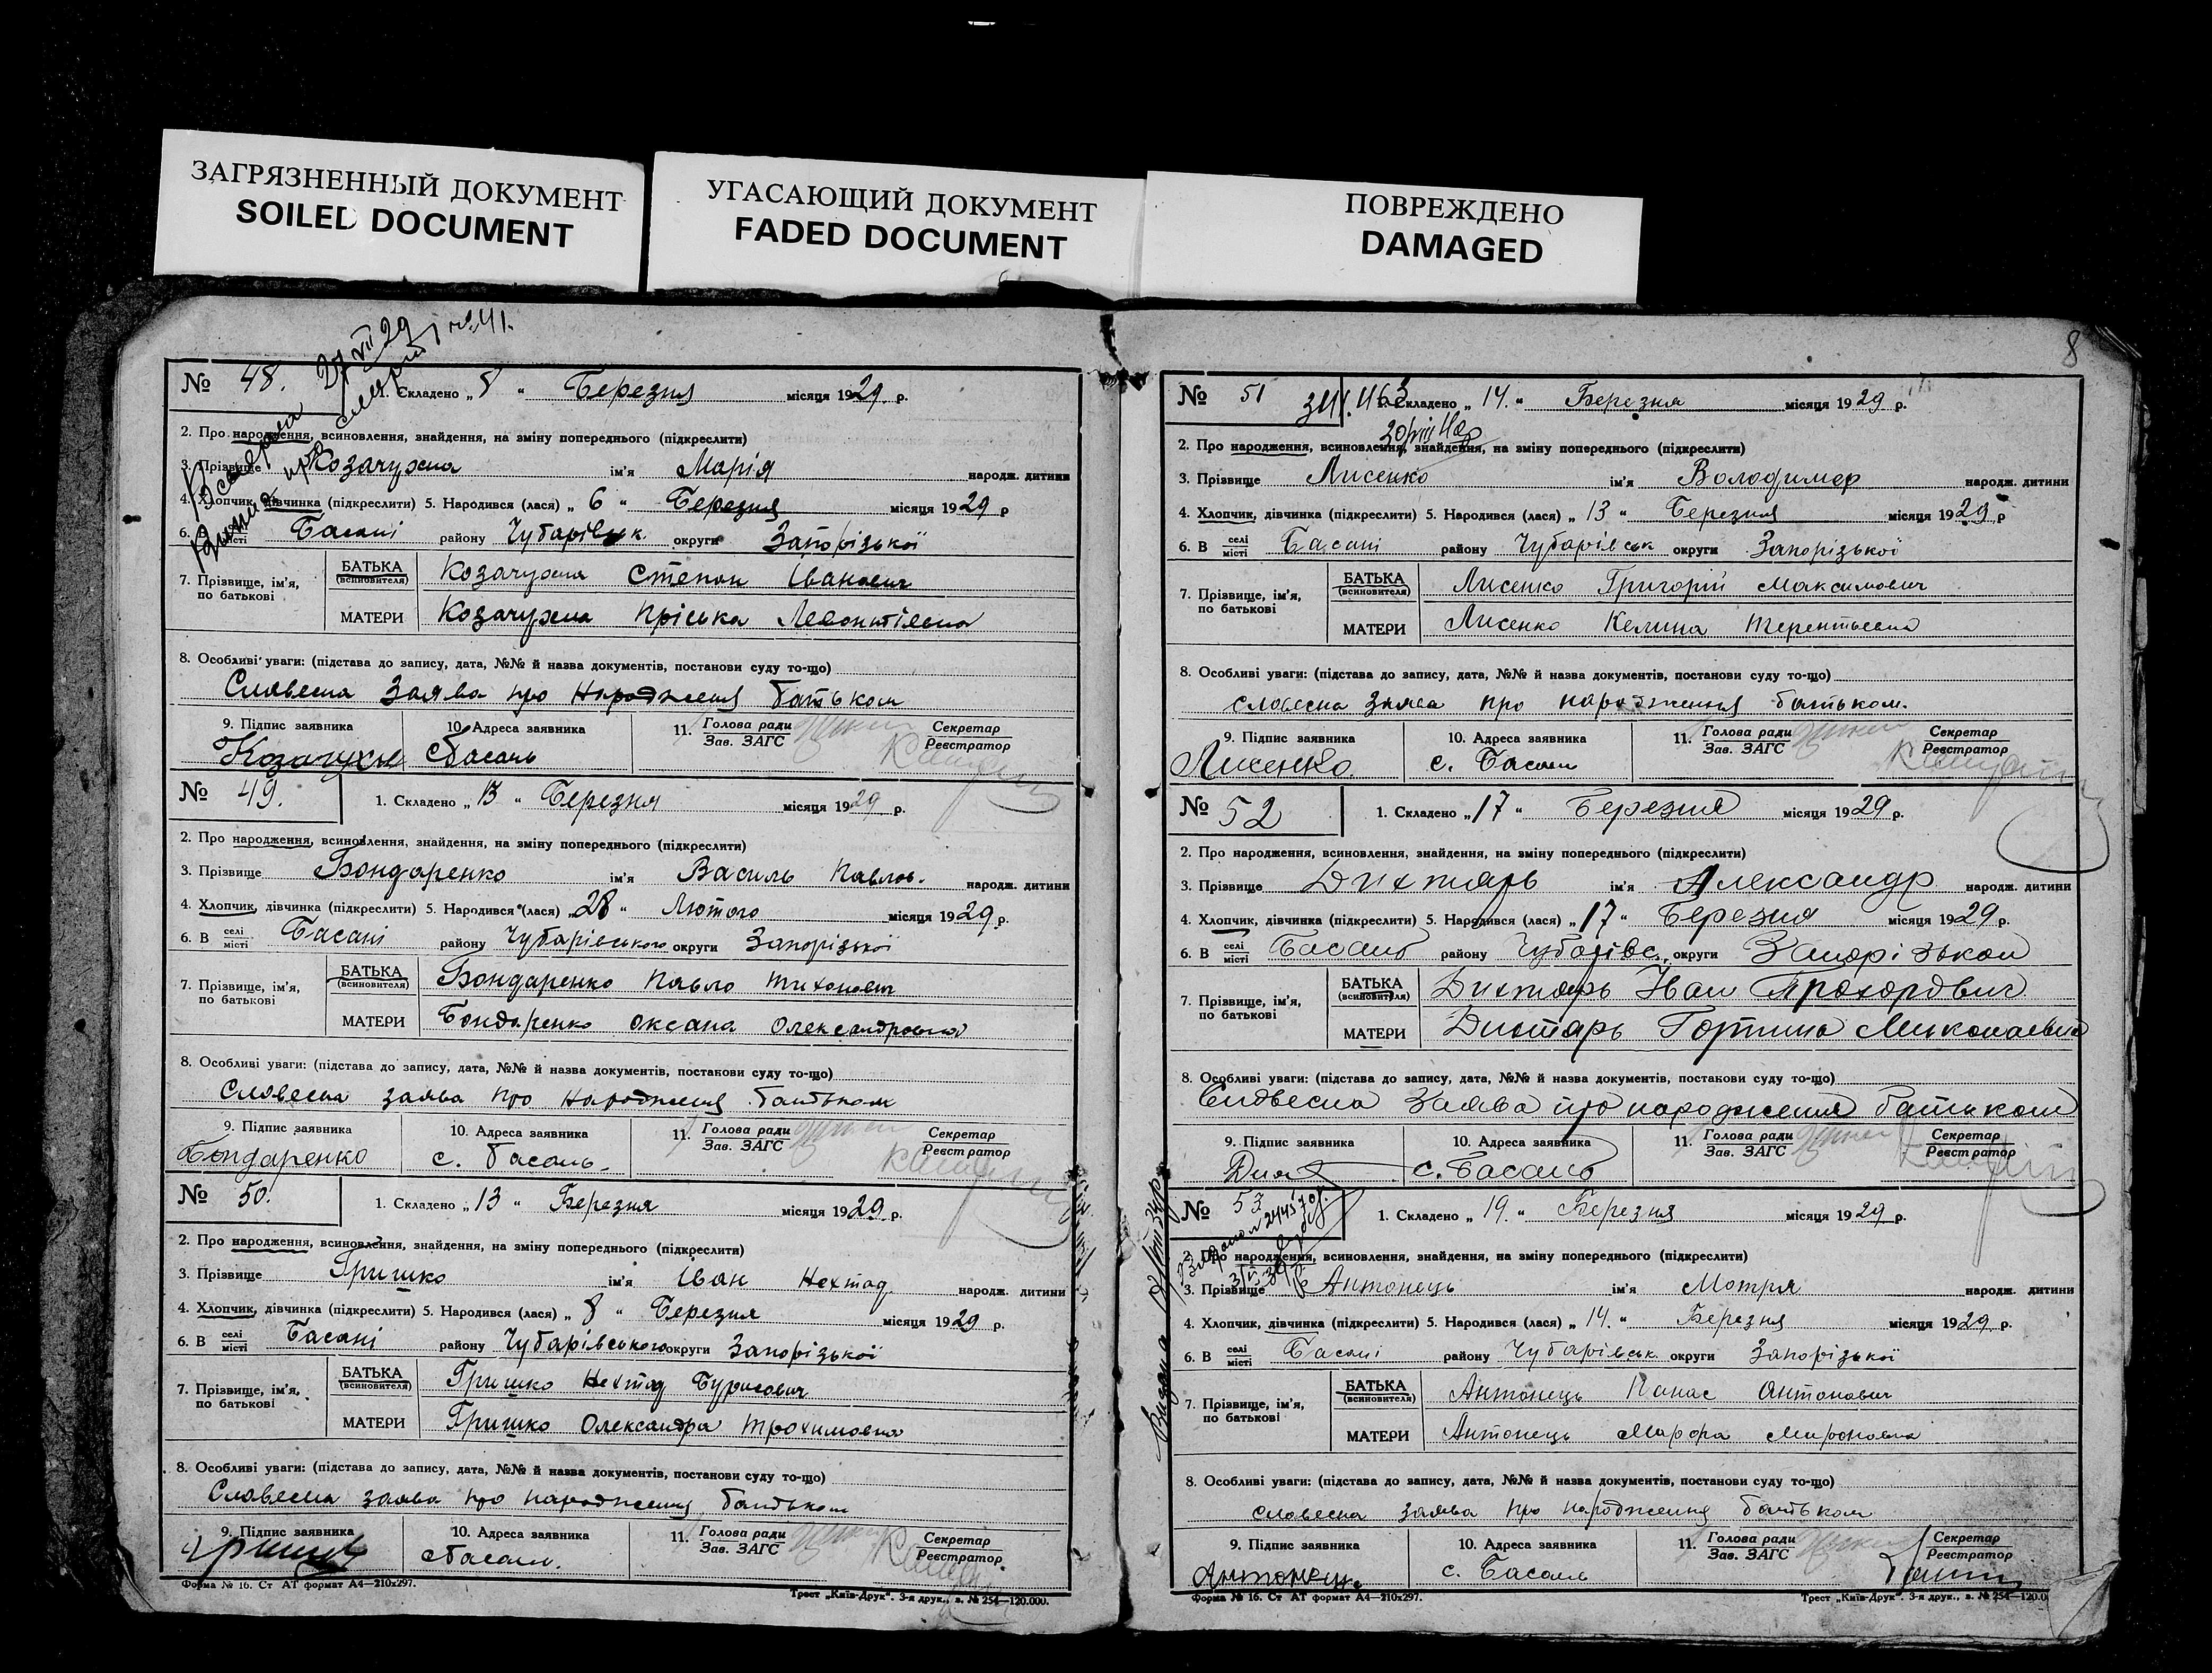 ЗАГРЯЗНЕННЫЙ ДОКУМЕНТ
SOILED DOCUMENT
УГАСАЮЩИЙ ДОКУМЕНТ
FADED DOCUMENT
ПОВРЕЖДЕНО
DAMAGED
№ 48. 1. Складено „ 8 “ Березня місяця 1929. р.
2. Про народження, всиновлення, знайдення, на зміну попереднього (підкреслити)
3. Прізвище Козачухна ім'я Марія народж. дитини
4. Хлопчик, дівчинка (підкреслити) 5. Народився (лася) „ 6 “ Березня місяця 1929 р
6. В селі місті Басані району Чубарівськ. округи Запорізької
7. Прізвище, ім'я, по батькові
БАТЬКА (всиновителя) Козачухна Степон Іванович
МАТЕРИ Козачухна Пріська Левонтіевна
8. Особливі уваги: (підстава до запису, дата, №№ й назва документів, постанови суду то-що)
Славесна Заява про Народженя батьком
9. Підпис заявника 10. Адреса заявника 11. Голова ради Зав. ЗАГС Секретар Реєстратор
с Басань
№ 49. 1. Складено „ 13 “ Березня місяця 1929 р.
2. Про народження, всиновлення, знайдення, на зміну попереднього (підкреслити)
3. Прізвище Бондаренко ім'я Василь Павлов. народж. дитини
4. Хлопчик, дівчинка (підкреслити) 5. Народився (лася) „ 28 “ Лютого місяця 1929 р.
6. В селі місті Басані району Чубарівського округи Запорізької
7. Прізвище, ім'я, по батькові
БАТЬКА (всиновителя) Бондаренко Павло Тихонович
МАТЕРИ Бондаренко Оксана Олександровна
8. Особливі уваги: (підстава до запису, дата, №№ й назва документів, постанови суду то-що)
Славесна заява про народженя батьком
9. Підпис заявника 10. Адреса заявника 11. Голова ради Зав. ЗАГС Секретар Реєстратор
Бондаренко с. Басань.
№ 50. 1. Складено „ 13 “ Березня місяця 1929. р.
2. Про народження, всиновлення, знайдення, на зміну попереднього (підкреслити)
3. Прізвище Гришко ім'я Іван Нехтод. народж. дитини
4. Хлопчик, дівчинка (підкреслити) 5. Народився (лася) „ 8 “ Березня місяця 1929 р.
6. В селі місті Басані району Чубарівського округи Запорізької
7. Прізвище, ім'я, по батькові
БАТЬКА (всиновителя) Гришко Нехтод Бурисович
МАТЕРИ Гришко Олександра Трохимовна
8. Особливі уваги: (підстава до запису, дата, №№ й назва документів, постанови суду то-що)
Славесна заява про народженя батьком
9. Підпис заявника 10. Адреса заявника 11. Голова ради Зав. ЗАГС Секретар Реєстратор
Форма № 16. Ст АТ формат А4—210x297. Трест „Київ-Друк“. 3-я друк., в. № 254—120.000.
8
№ 51 Складено „ 14. “ Березня місяця 1929 р.
2. Про народження, всиновлення, знайдення, на зміну попереднього (підкреслити)
3. Прізвище Лисенко ім'я Володимер народж. дитини
4. Хлопчик, дівчинка (підкреслити) 5. Народився (лася) „ 13 “ Березня місяця 1929 р
6. В селі місті Басані району Чубарівськ округи Запорізької
7. Прізвище, ім'я, по батькові
БАТЬКА (всиновителя) Лисенко Григорій Максимович
МАТЕРИ Лисенко Келина Терентьевна
8. Особливі уваги: (підстава до запису, дата, №№ й назва документів, постанови суду то-що)
словесна заява про народження батьком.
9. Підпис заявника 10. Адреса заявника 11. Голова ради Зав. ЗАГС Секретар Реєстратор
Лисенко. с. Басань
№ 52 1. Складено „ 17 “ Березня місяця 1929 р.
2. Про народження, всиновлення, знайдення, на зміну попереднього (підкреслити)
3. Прізвище Дихтярь ім'я Александр народж. дитини
4. Хлопчик, дівчинка (підкреслити) 5. Народився (лася) „ 17 “ Березня місяця 1929 р.
6. В селі місті Басань району Чубарівс. округи Запорізькой
7. Прізвище, ім'я, по батькові
БАТЬКА (всиновителя) Дихтярь Иван Прохорович
МАТЕРИ Дихтярь Горпина Миколаевна
8. Особливі уваги: (підстава до запису, дата, №№ й назва документів, постанови суду то-що)
Словесна Заява про народження батьком
9. Підпис заявника 10. Адреса заявника 11. Голова ради Зав. ЗАГС Секретар Реєстратор
с. Басань
№ 53 1. Складено „ 19. “ Березня місяця 1929 р.
2. Про народження, всиновлення, знайдення, на зміну попереднього (підкреслити)
3. Прізвище Антонець ім'я Мотря народж. дитини
4. Хлопчик, дівчинка (підкреслити) 5. Народився (лася) „ 14. “ Березня місяця 1929 р.
6. В селі місті Басані району Чубарівськ. округи Запорізької
7. Прізвище, ім'я, по батькові
БАТЬКА (всиновителя) Антонець Панас Антонович
МАТЕРИ Антонець Марфа Мироновна
8. Особливі уваги: (підстава до запису, дата, №№ й назва документів, постанови суду то-що)
словесна заява про народження батьком
9. Підпис заявника 10. Адреса заявника 11. Голова ради Зав. ЗАГС Секретар Реєстратор
Антонець с. Басань
Форма № 16. Ст АТ формат А4—210x297. Трест „Київ-Друк“. 3-я друк., в. № 254—120.0